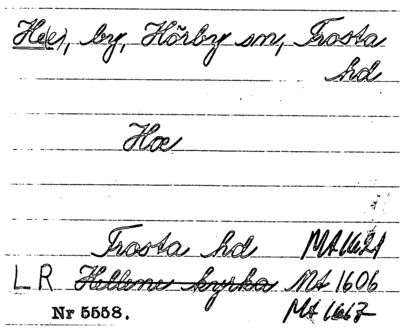 Ho(e), by, Hörby sn, Frosta
hd
Hoe
Frosta hd MA 1621
LR Hellene kyrka MA 1606
Nr 5558. MA 1667